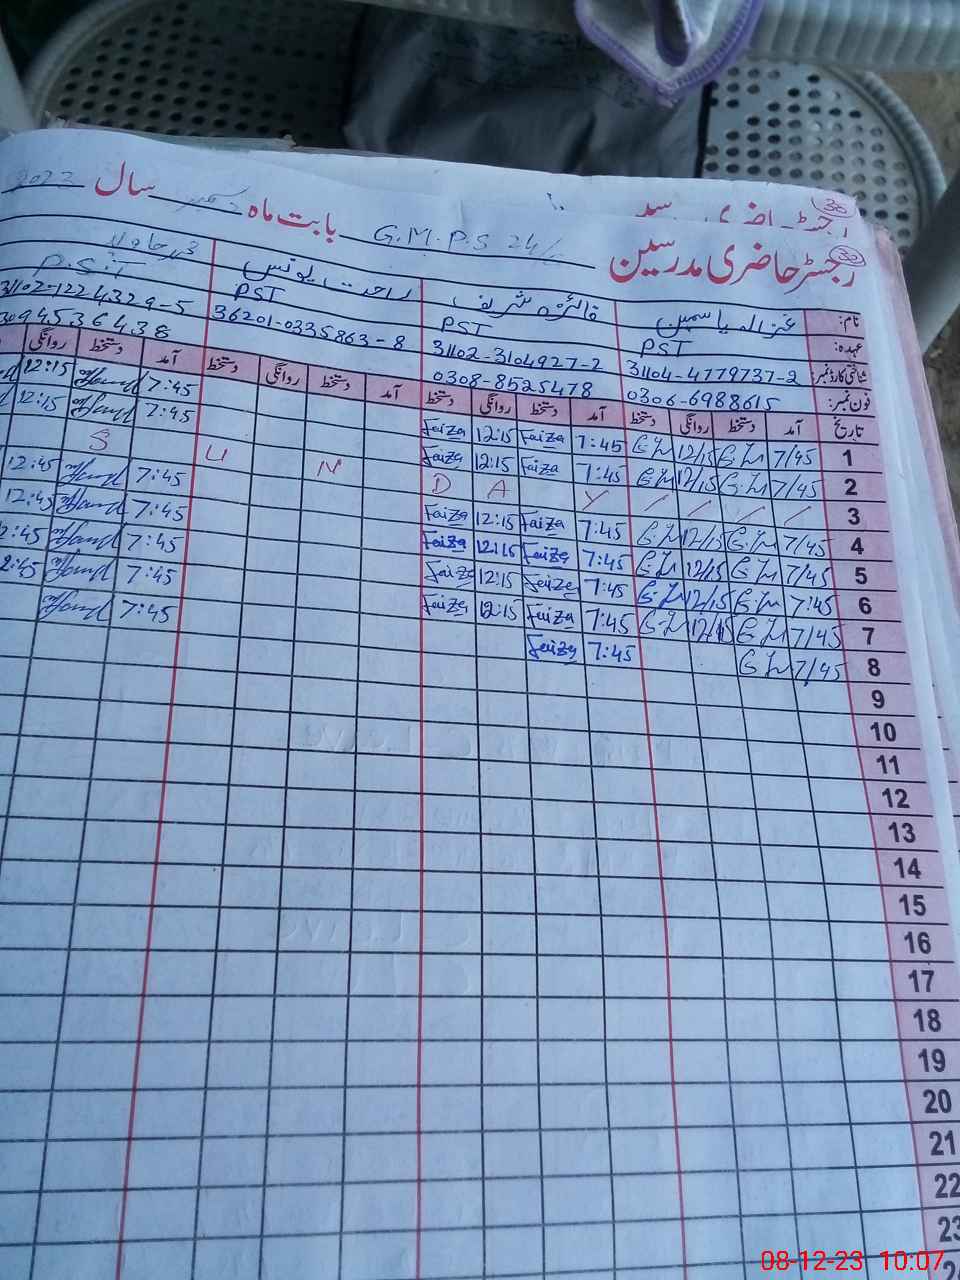 رجسٹر حاضری مدرسین G.M.P.S 24/ بابت ماہ دسمبر سال 2023
نام: غزالہ یاسمین فائزہ شریف راحت یونس
عہدہ: PST PST PST P.S.T
شناختی کارڈ نمبر 31104-4779737-2 31102-3104927-2 36201-0335863-8 31102-1224329-5
فون نمبر: 0306-6988615 0308-8525478 094536438
تاریخ آمد دستخط روانگی دستخط آمد دستخط روانگی دستخط آمد دستخط روانگی دستخط آمد دستخط روانگی
1 7/45 12/15 7:45 Faiza 12:15 Faiza 7:45 12:15
2 7/45 12/15 7:45 Faiza 12:15 Faiza 7:45 12:15
3 S U N D A Y
4 7/45 12/15 7:45 Faiza 12:15 Faiza 7:45 12:45
5 7/45 12/15 7:45 Faiza 12:15 Faiza 7:45 12:45
6 7:45 12/15 7:45 Faiza 12:15 Faiza 7:45 2:45
7 7/45 7:45 Faiza 12:15 Faiza 7:45 2:45
8 7/45 7:45 Faiza 7:45
9
10
11
12
13
14
15
16
17
18
19
20
21
22
23
08-12-23 10:07